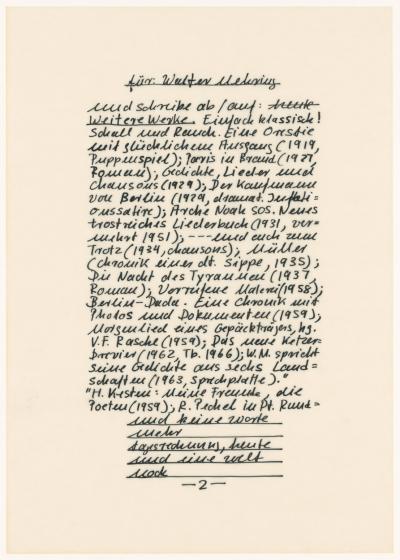 für: Walter Mehring
und schreibe ab/auf: heute
Weitere Werke. Einfach klassisch!
Schall und Rauch. Eine Orestie
mit glücklichem Ausgang (1919,
Puppenspiel); Paris in Brand (1927,
Roman); Gedichte, Lieder und
Chansons (1929); Der Kaufmann
von Berlin (1929, dramat. Inflati=
onssatire); Arche Noah SOS. Neues
trostreiches Liederbuch (1931, ver-
mehrt 1951); --- und euch zum
Trotz (1934, Chansons); Müller
(Chronik einer dt. Sippe, 1935);
Die Nacht des Tyrannen (1937,
Roman); Verrufene Malerei (1958);
Berlin-Dada. Eine Chronik mit
Photos und Dokumenten (1959);
Morgenlied eines Gepäckträgers, hg.
V.F. Rasche (1959); Das neue Ketzer-
brevier (1962, Tb. 1966); W.M. spricht
seine Gedichte aus sechs Land=
schaften (1963, Sprechplatte)."
"H. Kesten: Meine Freunde, die
Poeten (1959); R. Pechel in Dt. Rund=
und keine worte
mehr
tagsrechnung, heute
und eine welt
noch
—2—